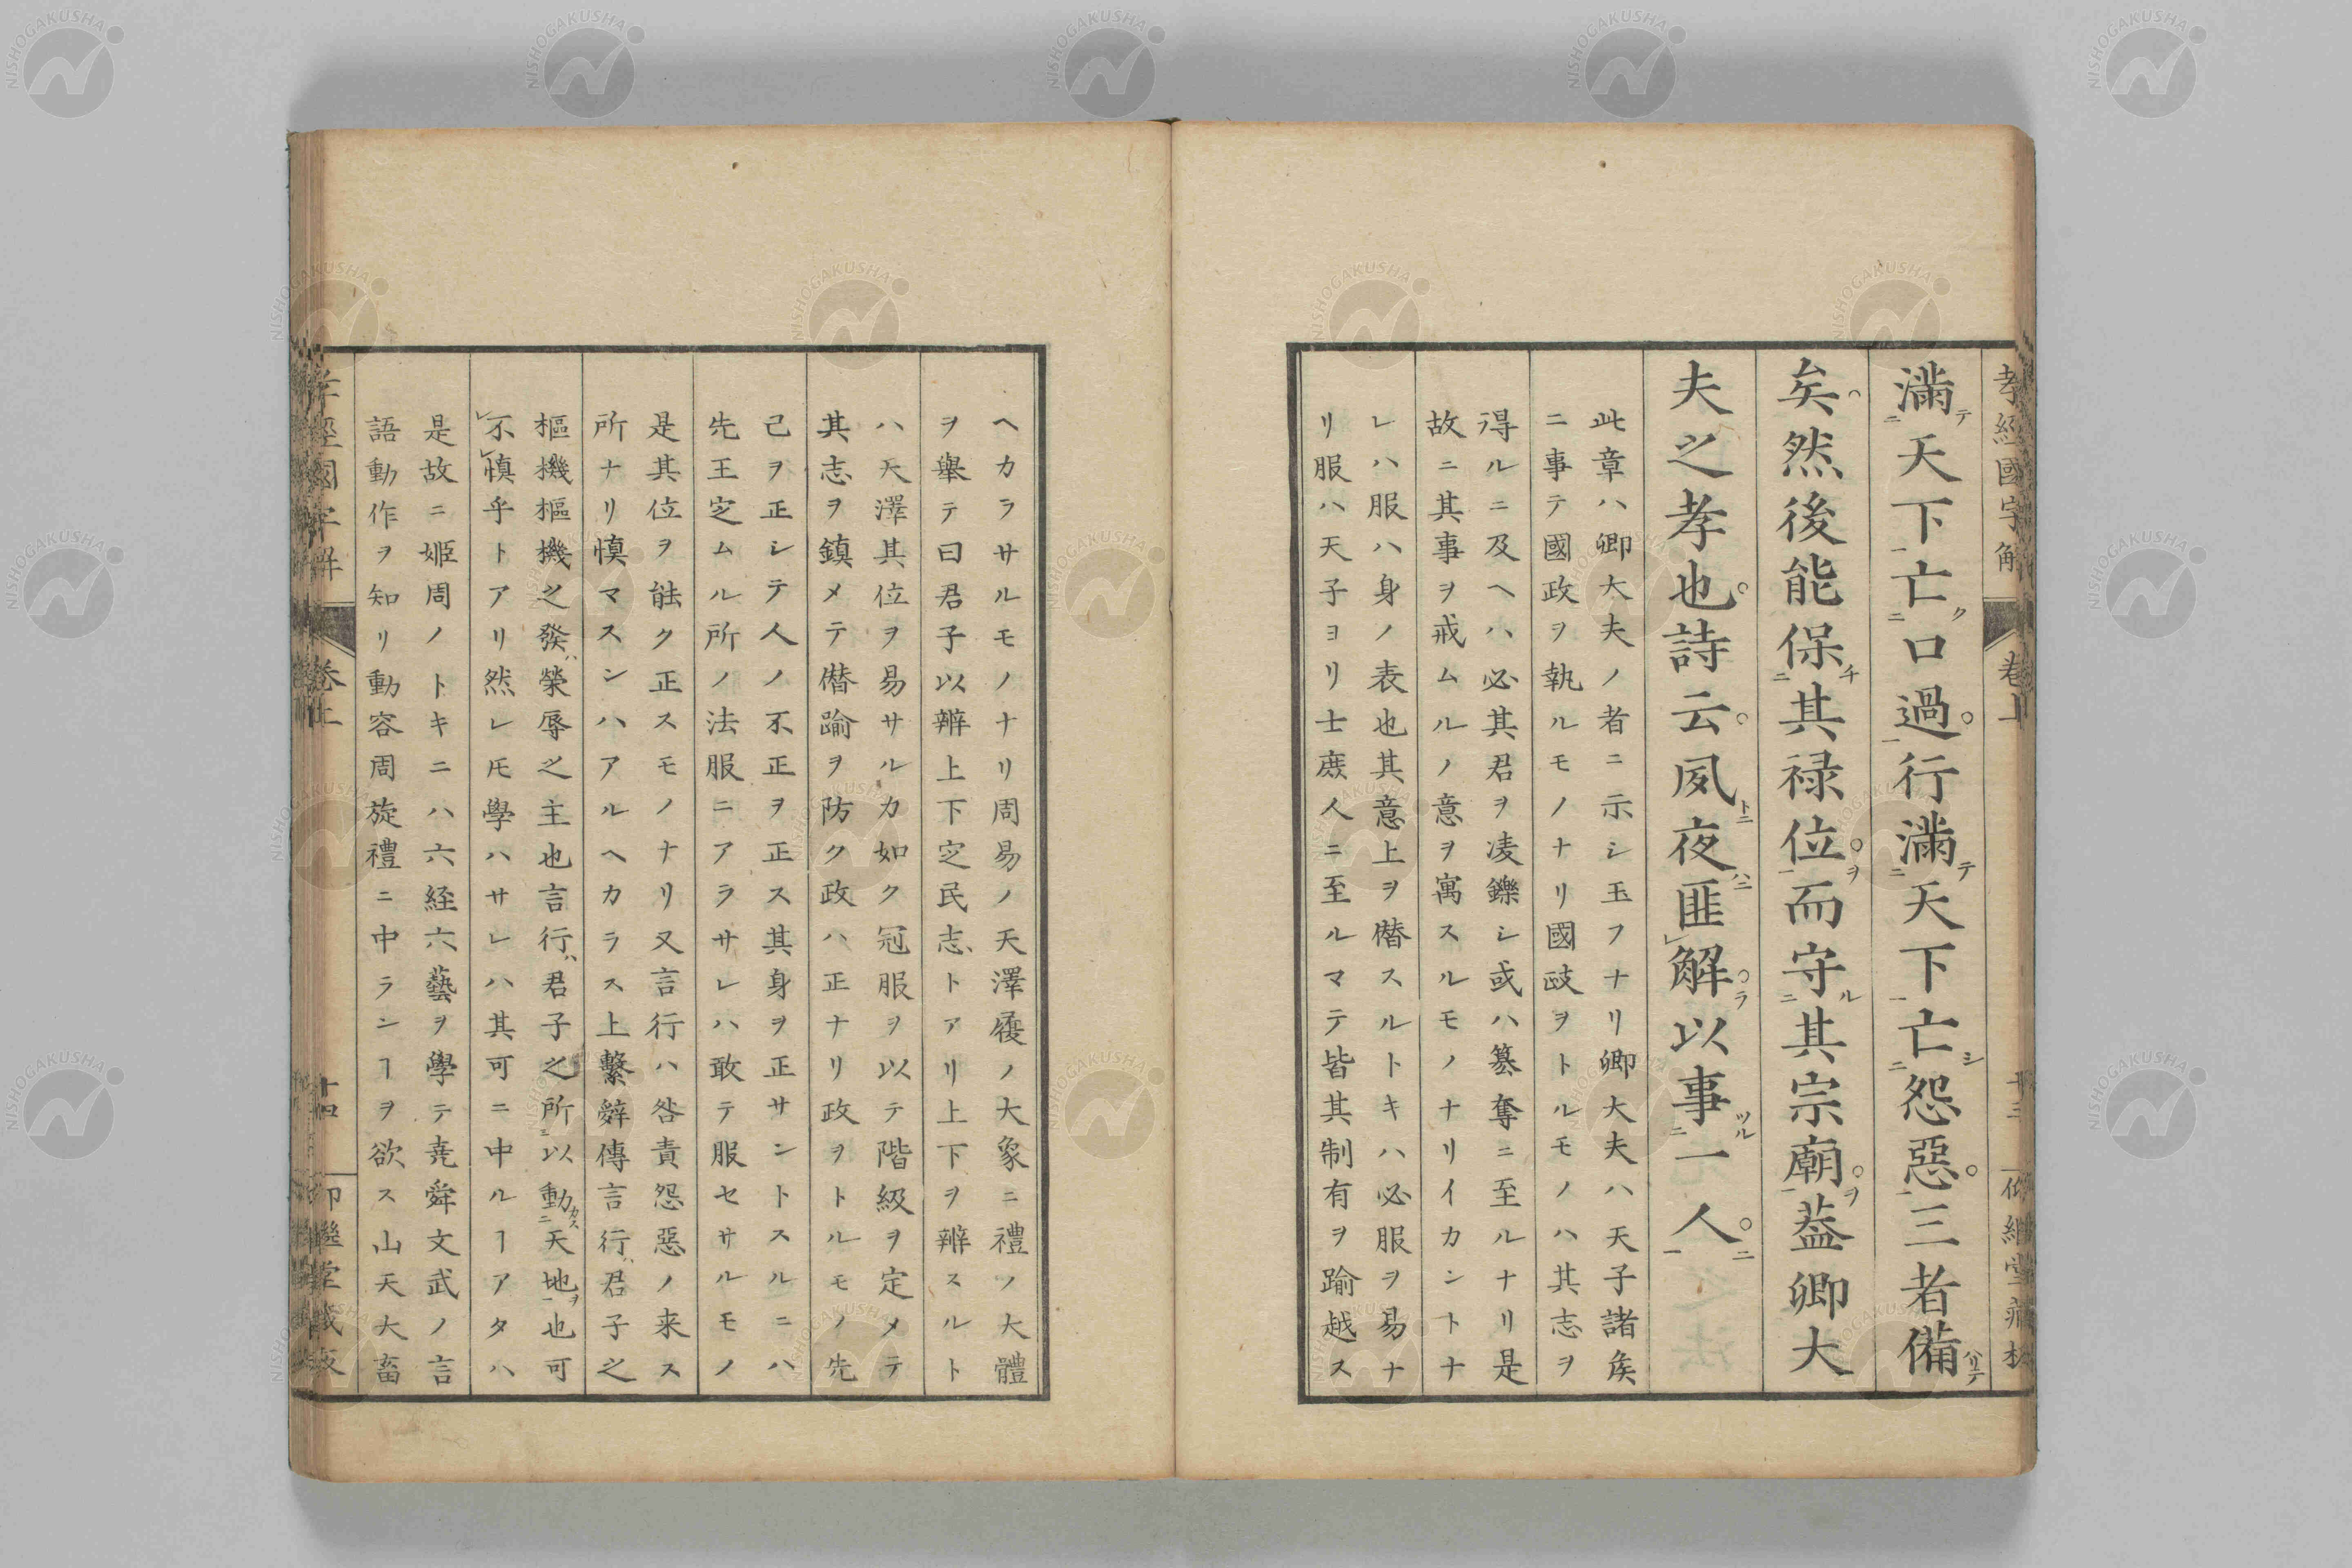 孝經國字解 卷上 十三
滿テ天下亡ク口過行滿テ天下亡シ怨惡三者備ハリテ
矣然後能保チ其禄位ヲ而守ル其宗廟ヲ葢卿大
夫之孝也詩云夙夜匪解以事ツル一人ニ
此章ハ卿大夫ノ者ニ示シ玉フナリ卿大夫ハ天子諸矦
ニ事テ國政ヲ執ルモノナリ國政ヲトルモノハ其志ヲ
得ルニ及ヘハ必其君ヲ凌鑠シ或ハ簒奪ニ至ルナリ是
故ニ其事ヲ戒ムルノ意ヲ寓スルモノナリイカントナ
レハ服ハ身ノ表也其意上ヲ僭スルトキハ必服ヲ易ナ
リ服ハ天子ヨリ士庶人ニ至ルマテ皆其制有ヲ踰越ス
ヘカラサルモノナリ周易ノ天澤履ノ大象ニ禮ノ大體
ヲ舉テ曰君子以辨上下定民志トアリ上下ヲ辨スルト
ハ天澤其位ヲ易サルカ如ク冠服ヲ以テ階級ヲ定メテ
其志ヲ鎮メテ僭踰ヲ防ク政ハ正ナリ政ヲトルモノ先
己ヲ正シテ人ノ不正ヲ正ス其身ヲ正サントスルニハ
先王定ムル所ノ法服ニアラサレハ敢テ服セサルモノ
是其位ヲ能ク正スモノナリ又言行ハ咎責怨惡ノ来ス
所ナリ慎マスンハアルヘカラス上繫辤傳言行ハ君子之
樞機樞機之發ハ榮辱之主也言行ハ君子之所以動カス天地ヲ也可
不慎乎トアリ然レ𪜈學ハサレハ其可ニ中ルヿアタハ
是故ニ姬周ノトキニハ六経六藝ヲ學テ堯舜文武ノ言
語動作ヲ知リ動容周旋禮ニ中ランヿヲ欲ス山天大畜
孝經國字解 卷上 十四